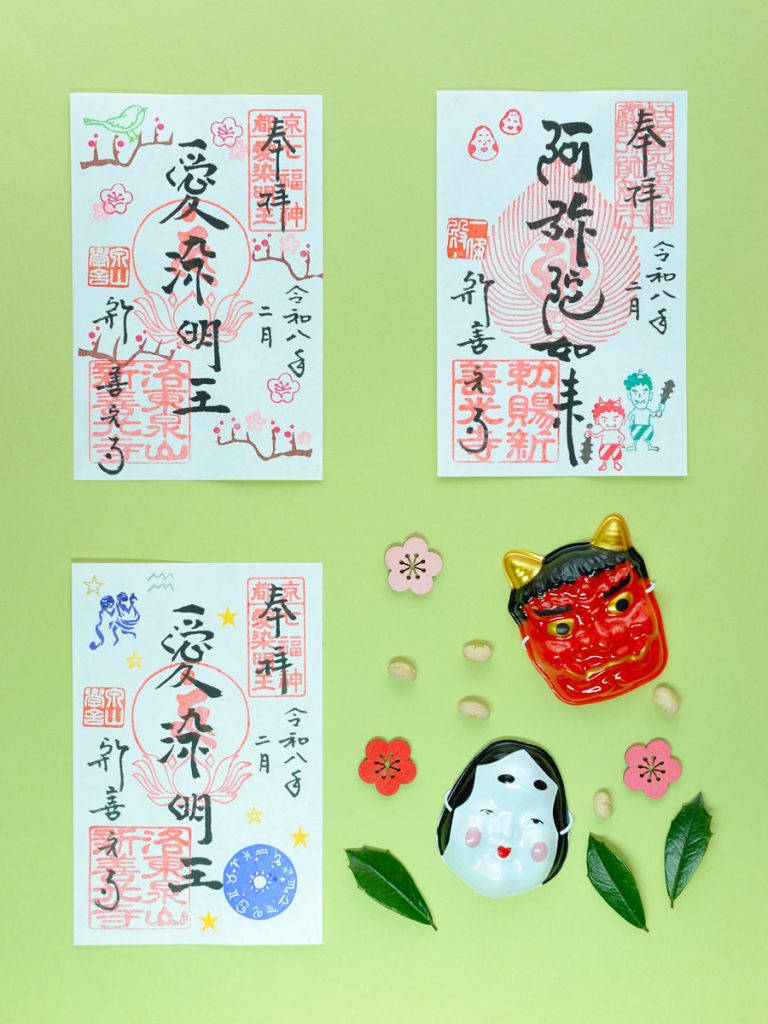 奉拝
京七福神
都愛染明王
令和八年
二月
愛染明王
泉山
學舎
新善光寺
洛東泉山
新善光寺
奉拝
令和八年
二月
阿弥陀如来
一條
殿
新善光寺
勅賜新
善光寺
奉拝
京七福神
都愛染明王
令和八年
二月
愛染明王
泉山
學舎
新善光寺
洛東泉山
新善光寺